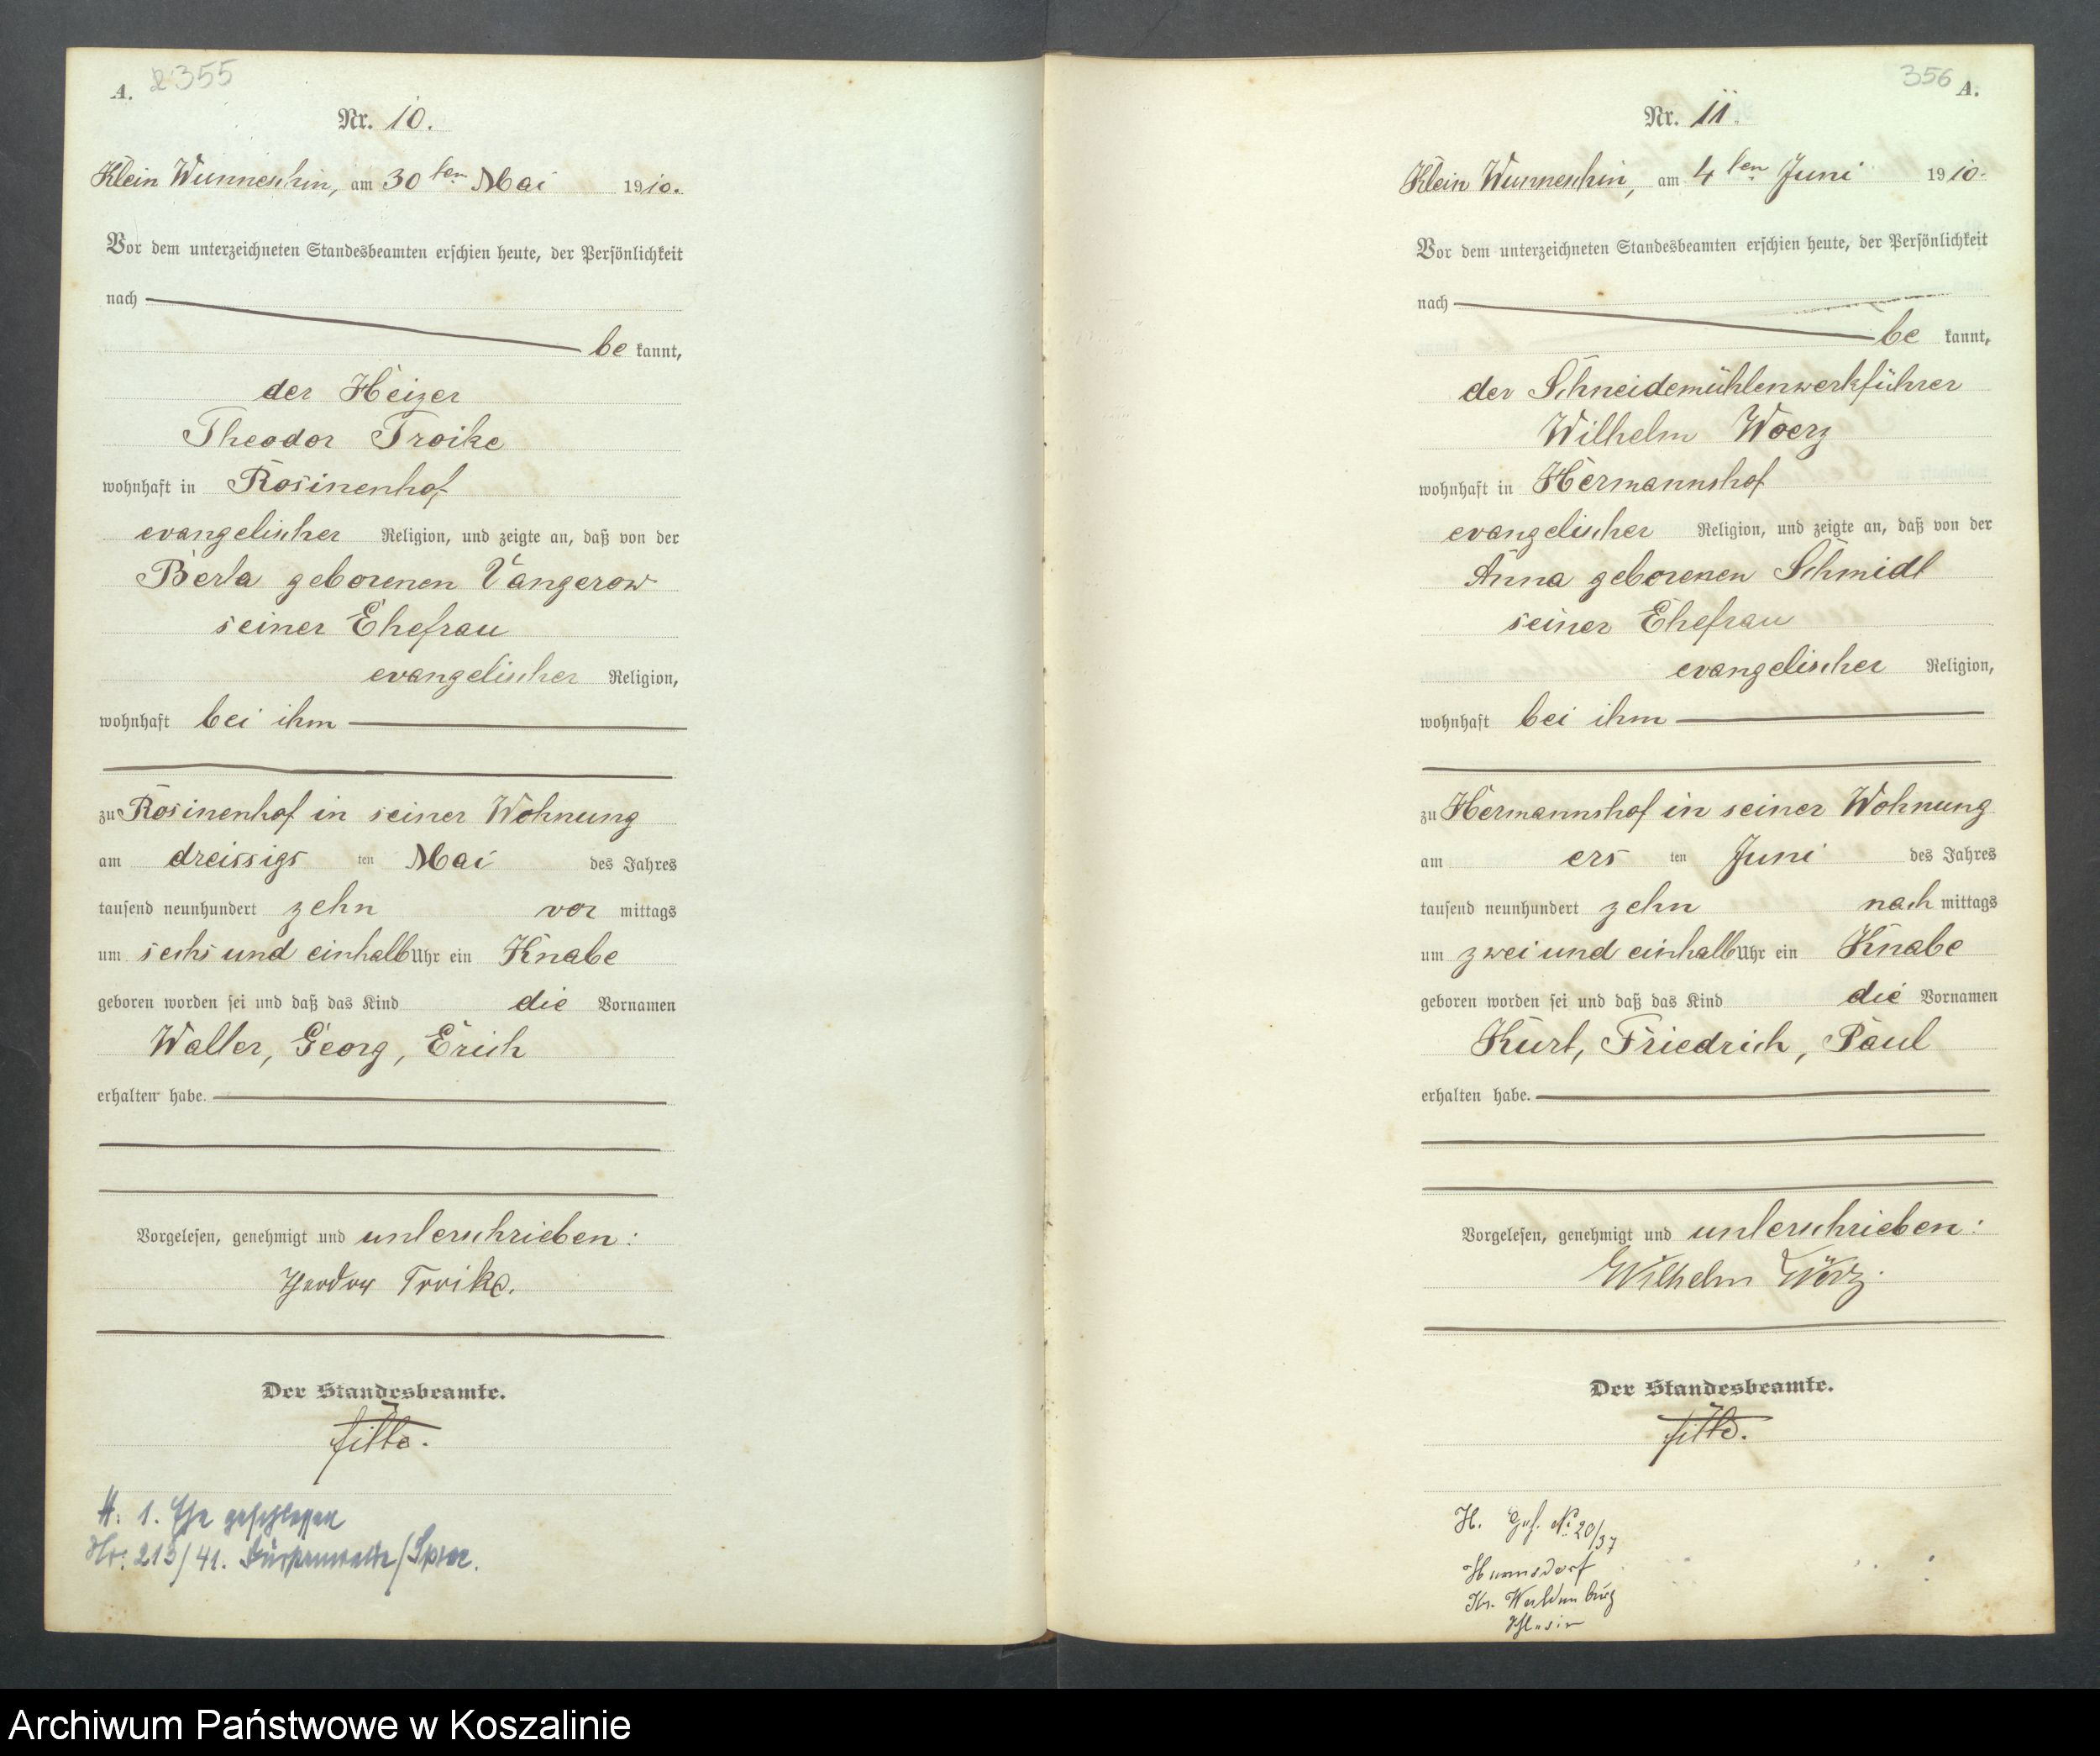 A. 355
Nr. 10.
Klein Wunneschin, am 30ten Mai 1910.
Vor dem unterzeichneten Standesbeamten erschien heute, der Persönlichkeit
nach
be kannt,
der Heizer
Theodor Troike
wohnhaft in Rosinenhof
evangelischer Religion, und zeigte an, daß von der
Berta geborenen Vangerow
seiner Ehefrau
evangelischer Religion,
wohnhaft bei ihm
zu Rosinenhof in seiner Wohnung
am dreissigs ten Mai des Jahres
tausend neunhundert zehn vor mittags
um sechs und einhalb Uhr ein Knabe
geboren worden sei und daß das Kind die Vornamen
Walter, Georg, Erich
erhalten habe.
Vorgelesen, genehmigt und unterschrieben:
Theodor Troike.
Der Standesbeamte.
H. 1. Ehe geschlossen
Nr. 213/41. Fürstenwalde/Spree.
356 A.
Nr. 11.
Klein Wunneschin, am 4ten Juni 1910.
Vor dem unterzeichneten Standesbeamten erschien heute, der Persönlichkeit
nach
be kannt,
der Schneidemühlenwerkführer
Wilhelm Woerz
wohnhaft in Hermannshof
evangelischer Religion, und zeigte an, daß von der
Anna geborenen Schmidt
seiner Ehefrau
evangelischer Religion,
wohnhaft bei ihm
zu Hermannshof in seiner Wohnung
am ers ten Juni des Jahres
tausend neunhundert zehn nach mittags
um zwei und einhalb Uhr ein Knabe
geboren worden sei und daß das Kind die Vornamen
Kurt, Friedrich, Paul
erhalten habe.
Vorgelesen, genehmigt und unterschrieben:
Wilhelm Wörz.
Der Standesbeamte.
H. No 20/37
Kr. Waldenburg
Archiwum Państwowe w Koszalinie